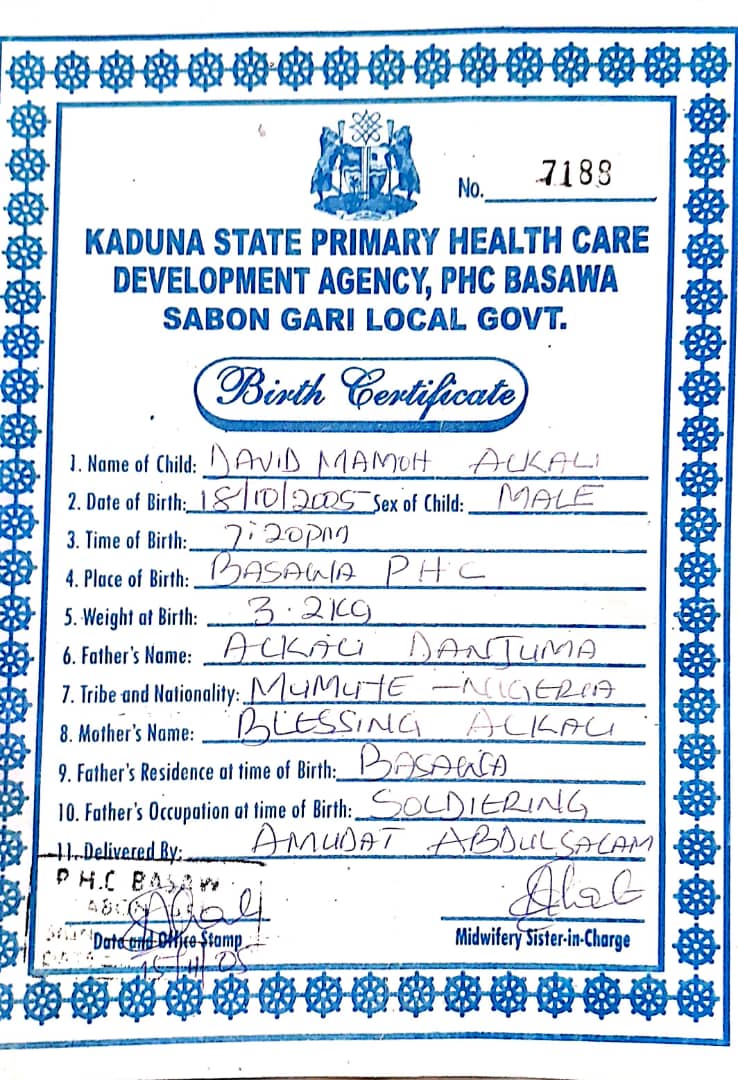 No. 7188
KADUNA STATE PRIMARY HEALTH CARE
DEVELOPMENT AGENCY, PHC BASAWA
SABON GARI LOCAL GOVT.
Birth Certificate
1. Name of Child: DAVID MAMOH ALKALI
2. Date of Birth: 18/10/2005 Sex of Child: MALE
3. Time of Birth: 7:20pm
4. Place of Birth: BASAWA PHC
5. Weight at Birth: 3.2KG
6. Father's Name: ALKALI DANJUMA
7. Tribe and Nationality: MUMUYE - NIGERIA
8. Mother's Name: BLESSING ALKALI
9. Father's Residence at time of Birth: BASAWA
10. Father's Occupation at time of Birth: SOLDIERING
11. Delivered By: AMUDAT ABDULSALAM
P.H.C BASAW
Date and Office Stamp
Midwifery Sister-in-Charge